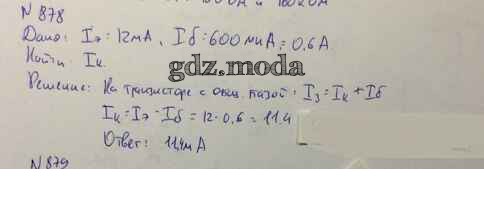 N 878
Дано: Iэ = 12мА, Iб = 600 мкА = 0.6 А.
Найти Iк.
gdz.moda
Решение: На транзисторе с общ. базой: Iэ = Iк + Iб
Iк = Iэ - Iб = 12 - 0.6 = 11.4
Ответ: 11,4мА
N 879